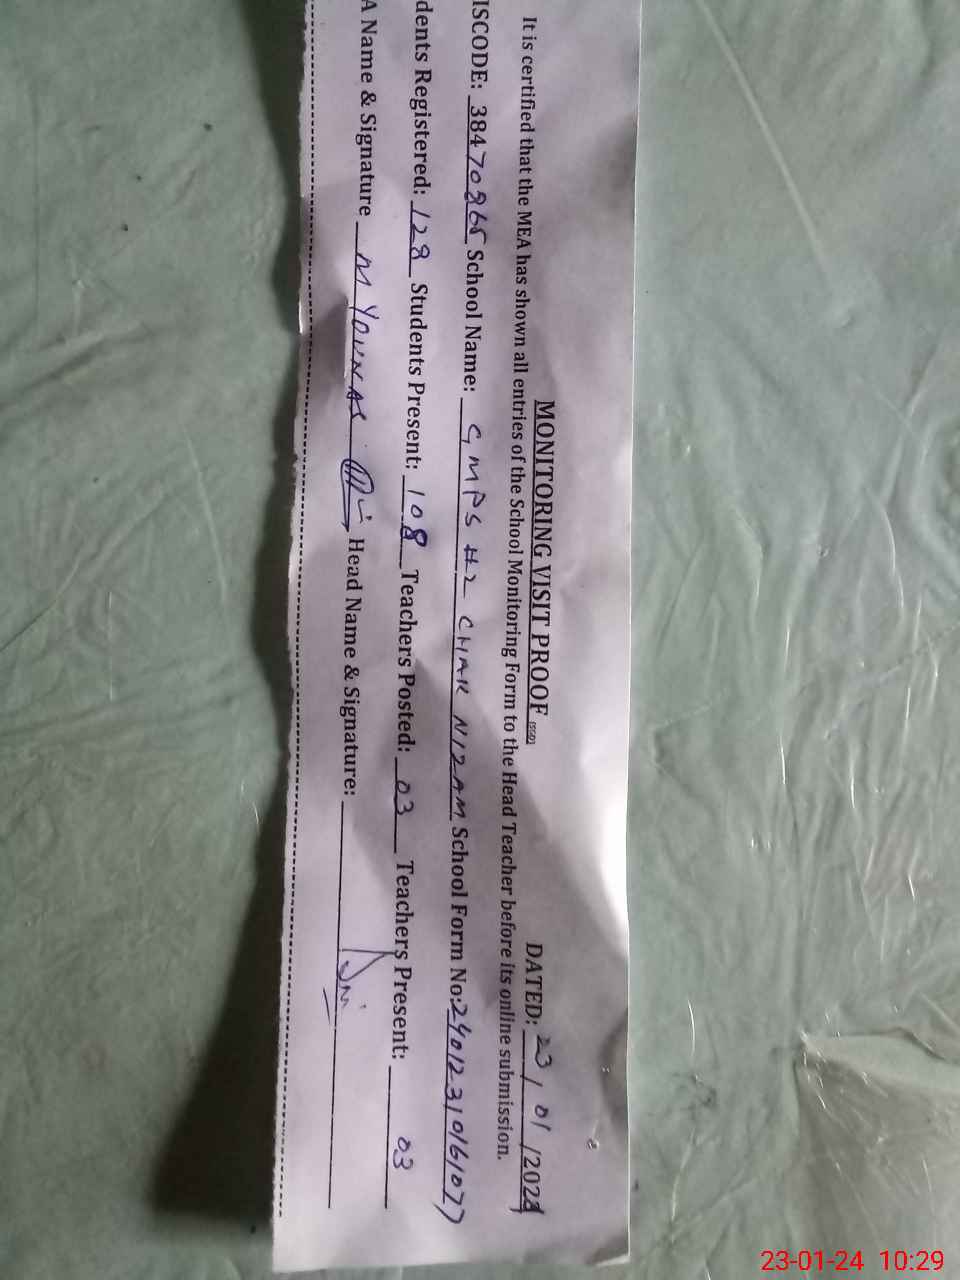 MONITORING VISIT PROOF (SSO) DATED: 23/01/2024
It is certified that the MEA has shown all entries of the School Monitoring Form to the Head Teacher before its online submission.
ISCODE: 38470865 School Name: GMPS #2 CHAK NIZAM School Form No: 2401231061077
dents Registered: 128 Students Present: 108 Teachers Posted: 03 Teachers Present: 03
A Name & Signature M YOUNAS Head Name & Signature:
23-01-24 10:29